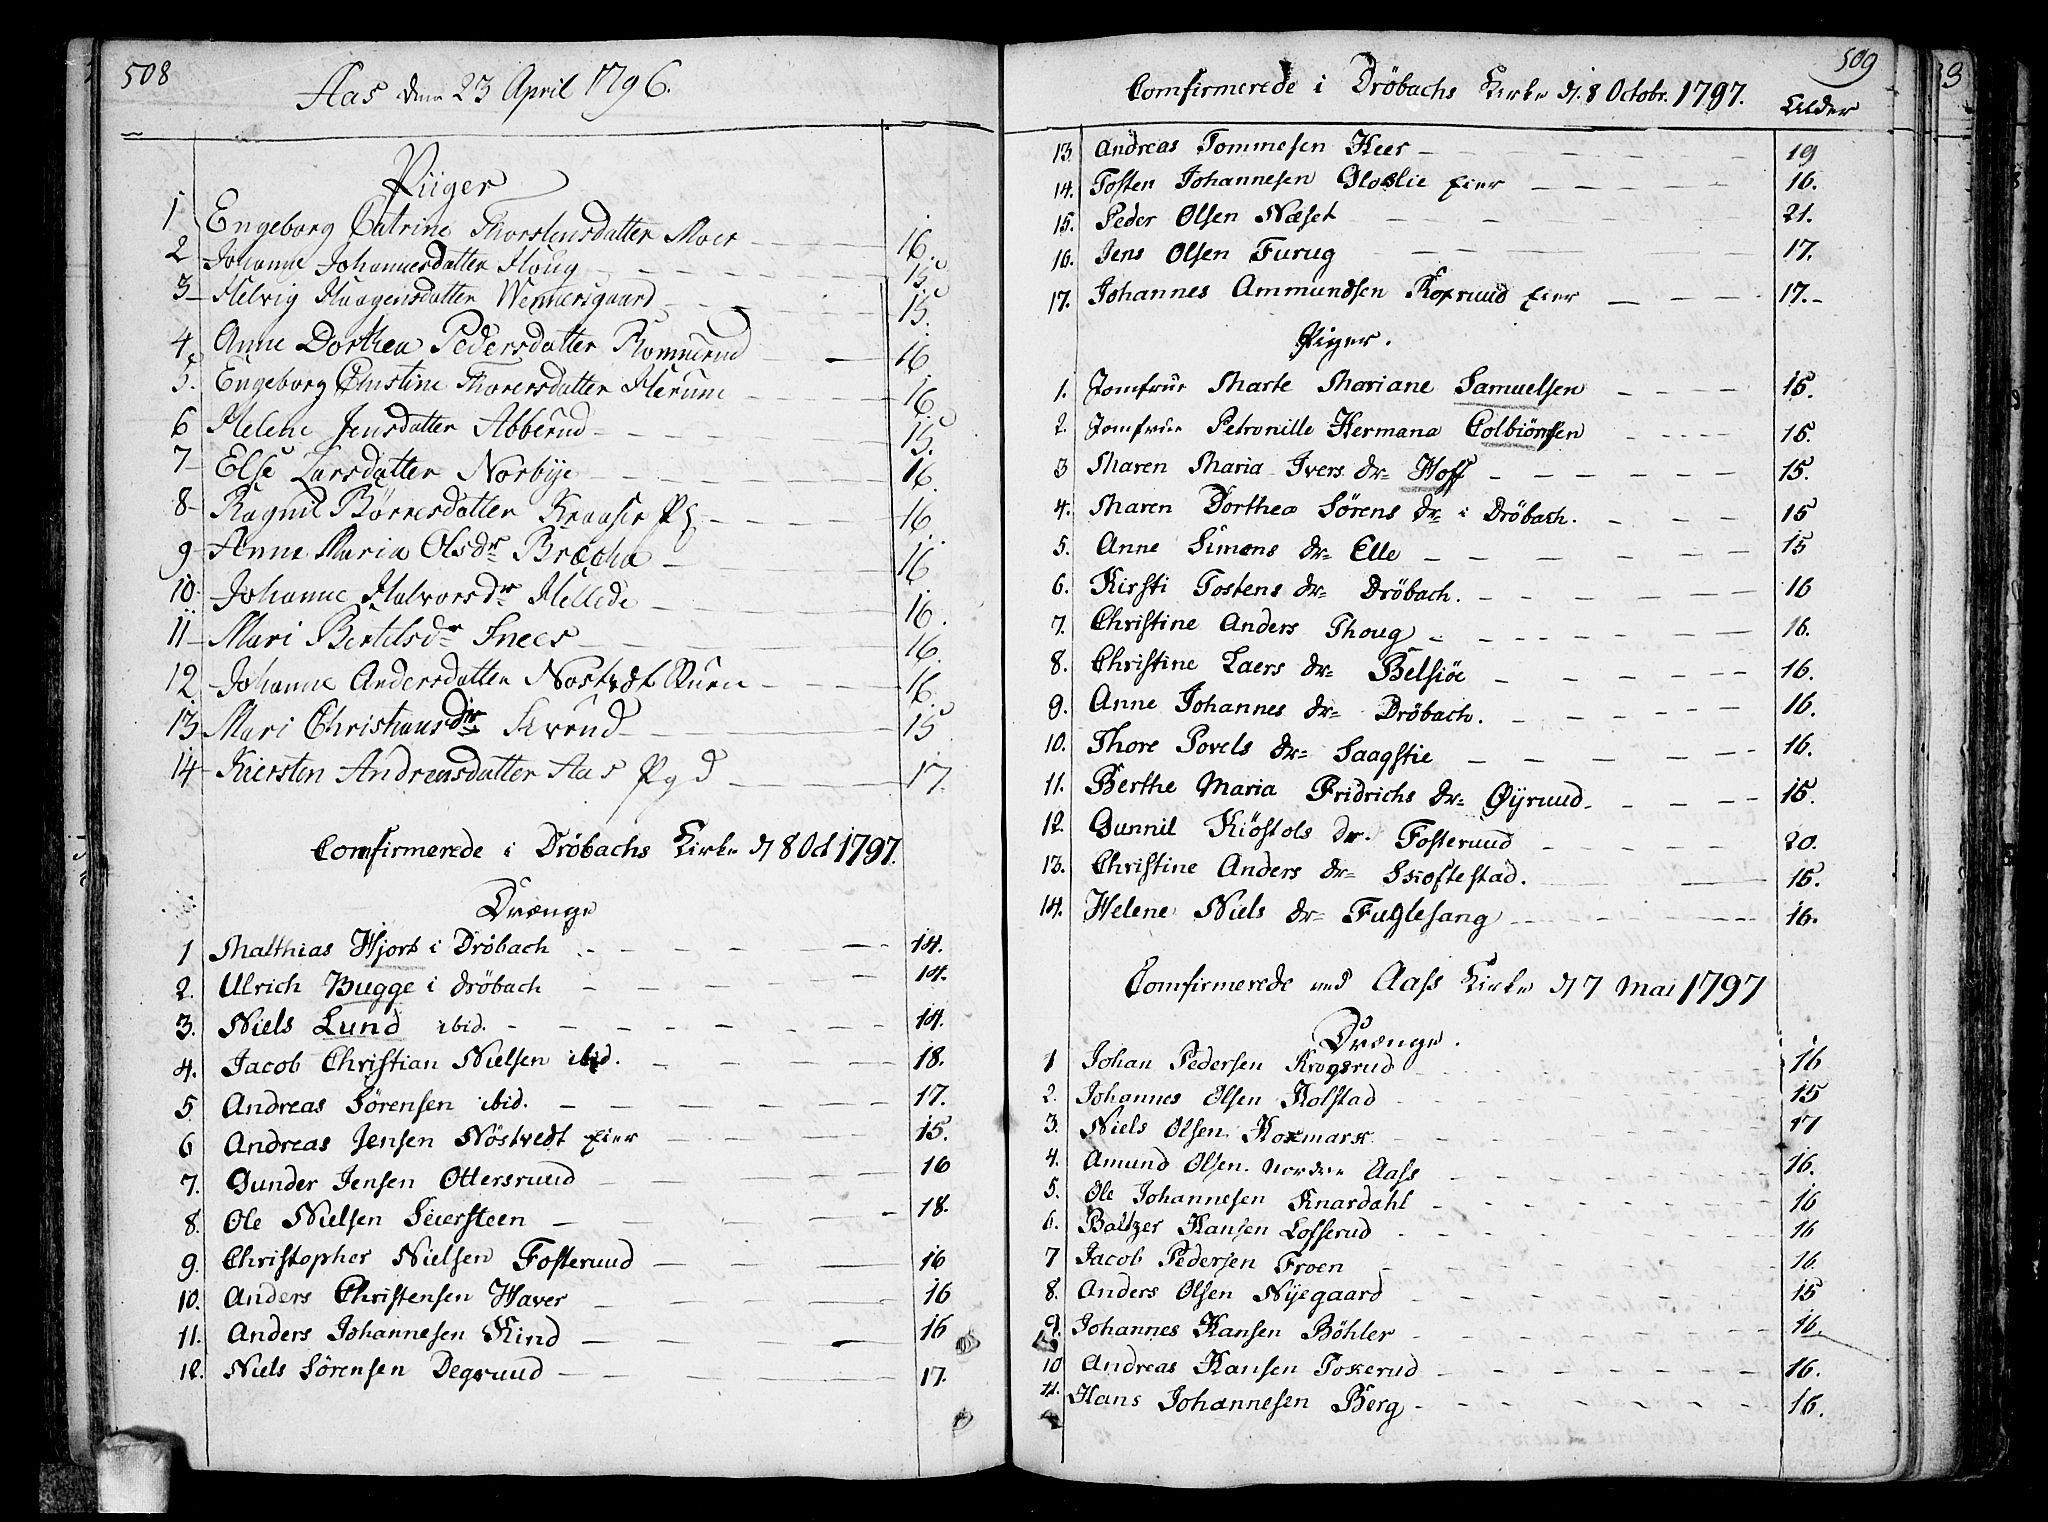 508
Aas den 23 April 1796.
Piiger
1 Engeborg Catrine Thorstensdatter Moer 16.
2 Johanne Johannesdatter Houg 15.
3 Helvig Haagensdatter Wennersgaard 15.
4 Anne Dorthea Pedersdatter Romnerud 16
5. Engeborg Christine Thorersdatter Herum 16
6 Helene Jensdatter Abberud 15.
7 Else Larsdatter Norbye 16.
8 Ragnil Børresdatter Kraaser 16.
9 Anne Maria Olsdr 16
10 Johanne Halvorsdr Hellede 16.
11 Mari Bertelsdr 16.
12 Johanne Andersdatter Nostvedt 16.
13 Mari Christiansdr 15
14 Kiersten Andreasdatter Aas Pgd 17.
Comfirmerede i Dröbachs Kirke d 8 Oct 1797.
Drænge
1 Matthias Hjort i Dröbach 14.
2. Ulrich Bugge i dröbach 14.
3. Niels Lund ibid. 14.
4. Jacob Christian Nielsen ibid. 18.
5 Andreas Sörensen ibid. 17.
6 Andreas Jensen Nöstvedt Eier 15.
7. Gunder Jensen Ottersruud 16
8. Ole Nielsen Seiersteen 18.
9. Christopher Nielsen Fosteruud 16
10. Anders Christensen Haver 16
11. Anders Johannesen Kind 16
12. Niels Sörensen Degruud 17.
509
Comfirmerede i Dröbachs Kirke d. 8 Octobr. 1797.
Alder
13. Andreas Tommesen Heer 19
14. Tosten Johannesen Gloslie Eier 16.
15. Peder Olsen Næset 21.
16. Jens Olsen Furug 17.
17. Johannes Ammundsen Korsruud Eier 17.
Piger.
1. Jomfrue Marte Mariane Samuelsen 15.
2. Jomfrue Petronille Hermana Colbiörnsen 15.
3 Maren Maria Ivers dr= Hoff 15.
4. Maren Dorthea Sörens dr= i Dröbach. 15
5. Anne Simens dr= Elle 15
6. Kirsti Tostens dr= Dröbach. 16
7. Christine Anders Thoug 16.
8. Christine Laers dr= Belsiöe 16.
9. Anne Johannes dr= Dröbach. 16.
10. Thore Povels dr= Saagstie 16.
11. Berthe Maria Fridrichs dr= Öyruud 15.
12. Gunnil Kiöstols dr. Fosteruud 20.
13. Christine Anders dr= Skoftestad. 15.
14. Helene Niels dr= Fuglesang 16.
Comfirmerede ved Aass Kirke d 7 Mai 1797
Drænge.
1 Johan Pedersen Krogsrud 16
2. Johannes Olsen Holstad 15
3. Niels Olsen Kosmark 17
4. Amund Olsen Nordre Aass 16.
5. Ole Johannesen Knardahl 16
6. Baltzer Hansen Losserud 16
7 Jacob Pedersen Froen 16
8. Anders Olsen Nyegaard 15
9. Johannes Hansen Böhler 16
10 Andreas Hansen Tokerud 16.
11. Hans Johannesen Berg 16.